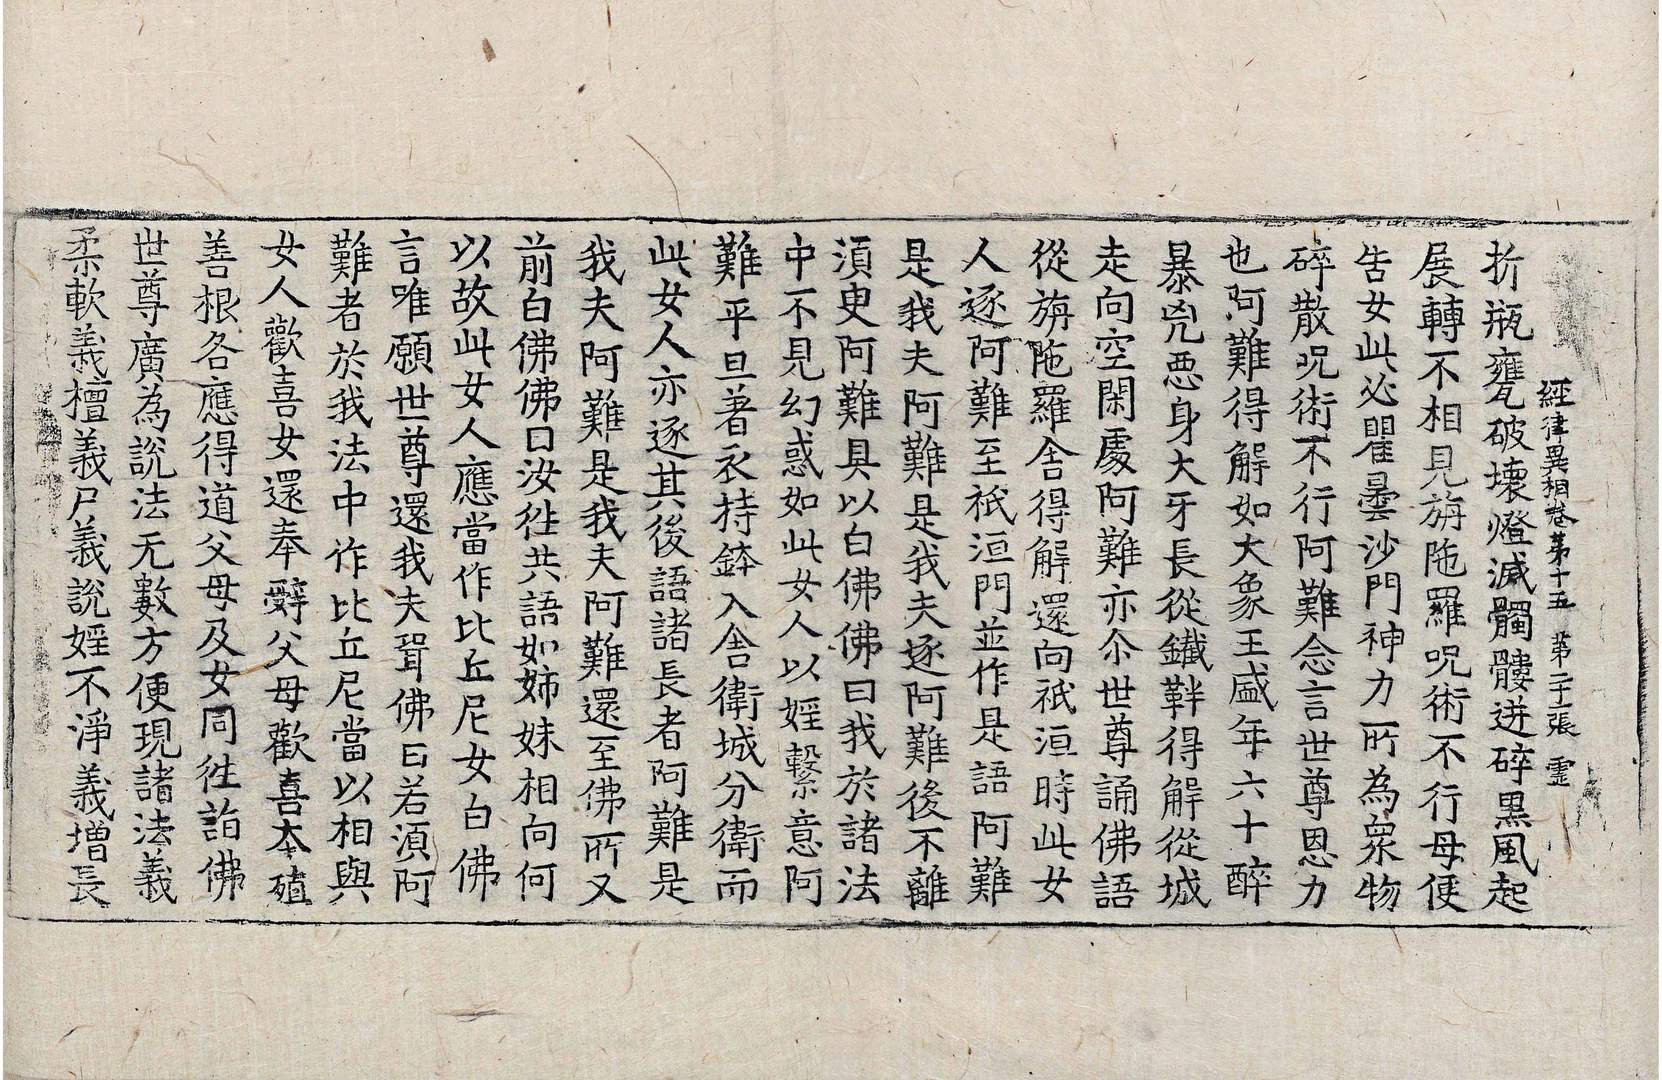 經律異相卷第十五 第二十張 靈
折瓶甕破壞燈滅髑髏迸碎黑風起
展轉不相見旃陁羅呪術不行母便
告女此必瞿曇沙門神力所為衆物
碎散呪術不行阿難念言世尊恩力
也阿難得解如大象王盛年六十醉
暴兇惡身大牙長從鐵靽得解從城
走向空閑處阿難亦尒世尊誦佛語
從旃陁羅舍得解還向祇洹時此女
人逐阿難至祇洹門並作是語阿難
是我夫阿難是我夫逐阿難後不離
湏臾阿難具以白佛佛曰我於諸法
中不見幻惑如此女人以婬繫意阿
難平旦著衣持鉢入舍衛城分衛而
此女人亦逐其後語諸長者阿難是
我夫阿難是我夫阿難還至佛所又
前白佛佛曰汝徃共語如姊妹相向何
以故此女人應當作比丘尼女白佛
言唯願世尊還我夫聟佛曰若湏阿
難者於我法中作比丘尼當以相與
女人歡喜女還奉辭父母歡喜本殖
善根各應得道父母及女同徃詣佛
世尊廣為說法无數方便現諸法義
柔軟義檀義尸義說婬不淨義增長